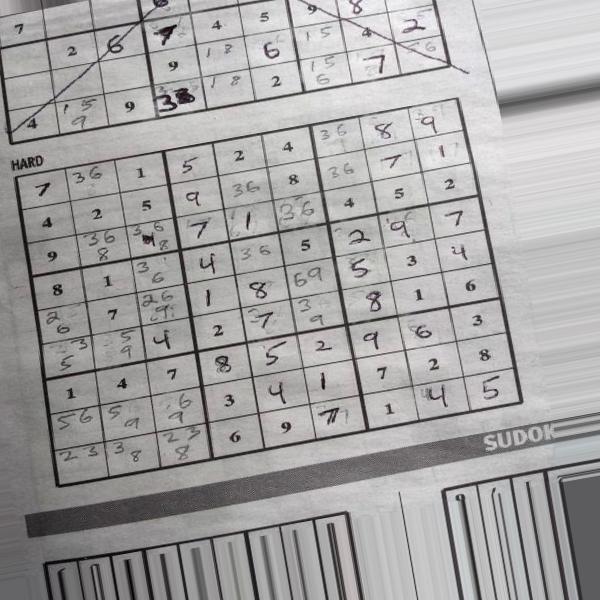 7 6 9 8
2 6 7 4 5 15 4 2
9 18 6 15 6 7 56
4 15 9 9 3 18 2
HARD
7 36 1 5 2 4 36 8 9
4 2 5 9 36 8 36 7 1
9 36 8 7 1 36 4 5 2
8 1 36 4 36 5 2 9 7
26 7 26 9 1 8 69 5 3 4
5 3 59 4 2 7 39 8 1 6
1 4 7 8 5 2 9 6 3
56 59 69 3 4 1 7 2 8
23 38 23 8 6 9 7 1 4 5
SUDOK